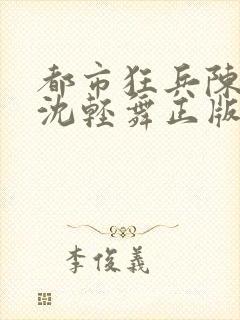 都市狂兵陳
沈輕舞正版
李俊義